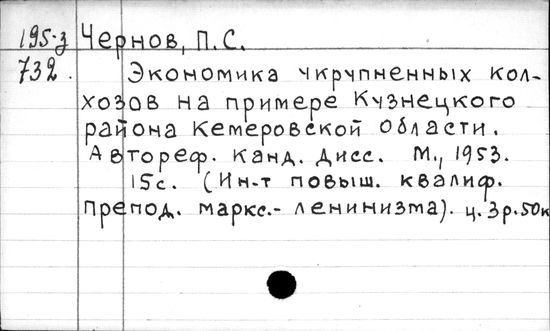 195-з Чернов, П.С.
732. Экономика укрупненных кол-
хозов на примере Кузнецкого
района Кемеровской области.
Автореф. канд. дисс. М., 1953.
15с. (Ин-т повыш. квалиф.
препод. маркс.-ленинизма). ц. 3р.50к